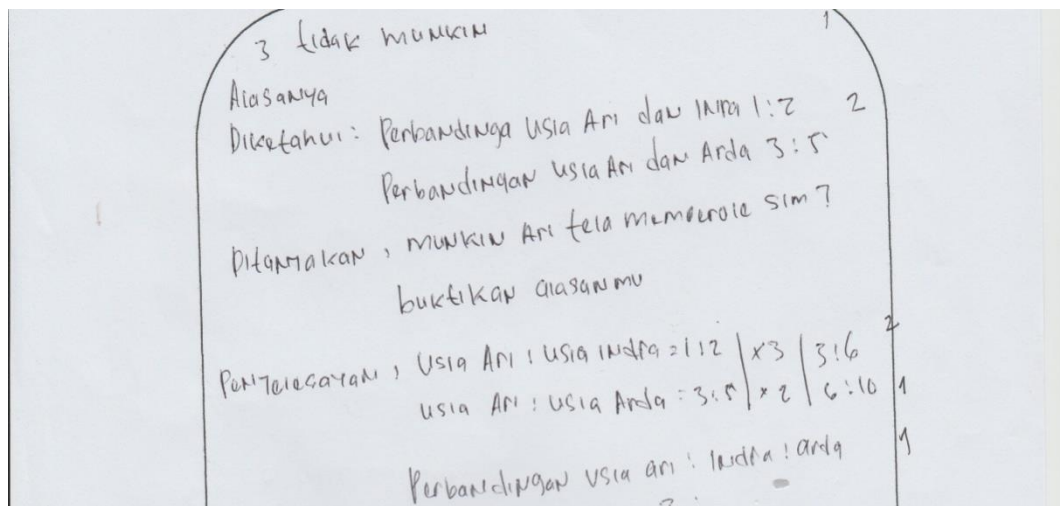 3 tidak munkin 1
Alasanya
Diketahui: Perbandinga usia Ari dan Inra 1:2 2
Perbandingan usia Ari dan Arda 3:5
Ditanyakan, munkin Ari tela memperole sim?
buktikan alasanmu
Penyelesayan, usia Ari : usia indra = 1:2 | x3 | 3:6 2
usia Ari : usia Arda = 3:5 | x 2 | 6:10 1
Perbandingan usia ari : Indra : arda 1